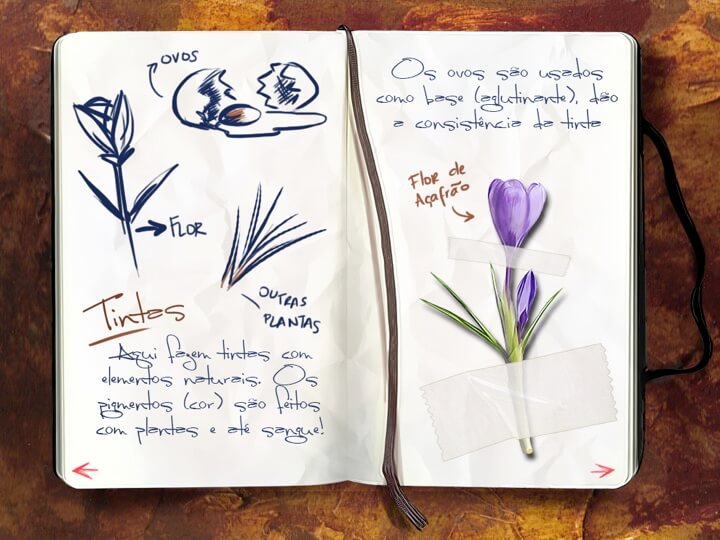 OVOS
FLOR
OUTRAS
PLANTAS
Tintas
Aqui fazem tintas com
elementos naturais. Os
pigmentos (cor) são feitos
com plantas e até sangue!
Os ovos são usados
como base (aglutinante), dão
a consistência da tinta
Flor de
Açafrão